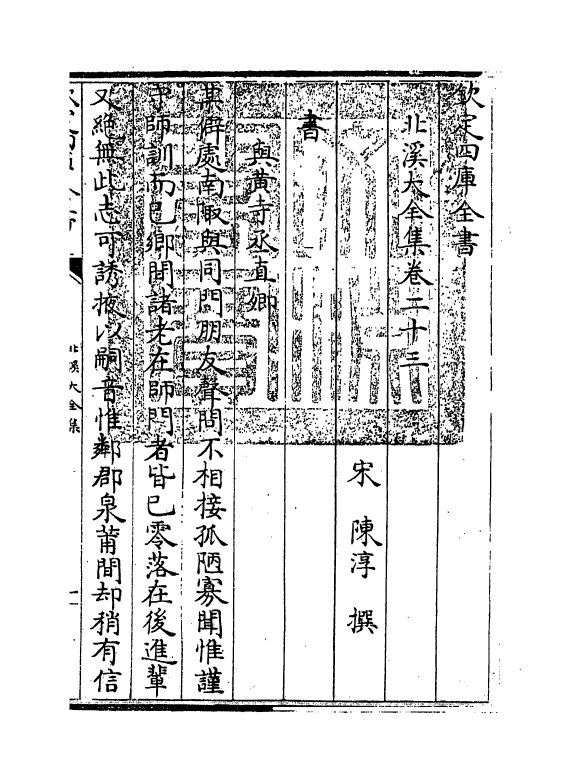 欽定四庫全書
北溪大全集卷二十三
宋 陳淳 撰
書
與黃寺丞直卿
某僻處南陬與同門朋友聲問不相接孤陋寡聞惟謹
守師訓而已鄉閒諸老在師門者皆已零落在後進輩
又絶無此志可誘掖以嗣音惟鄰郡泉莆間却稍有信
北溪大全集